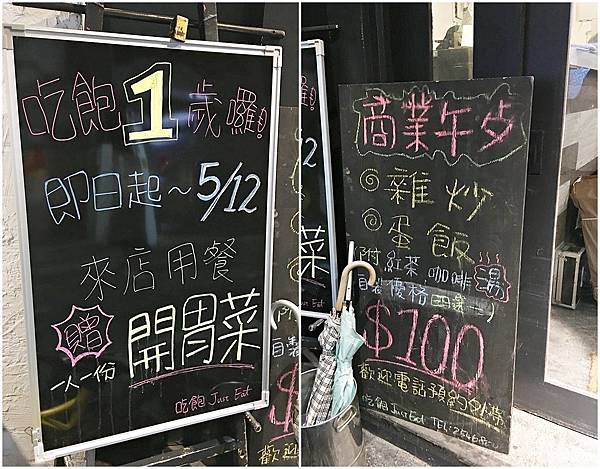 吃飽1歲囉!
即日起~5/12
來店用餐
贈 開胃菜
一人一份
吃飽 Just Eat
商業午歺
雞炒
蛋飯
附 紅茶 咖啡 湯
自製優格
$100
歡迎電話預約外帶
吃飽 Just Eat TEL: